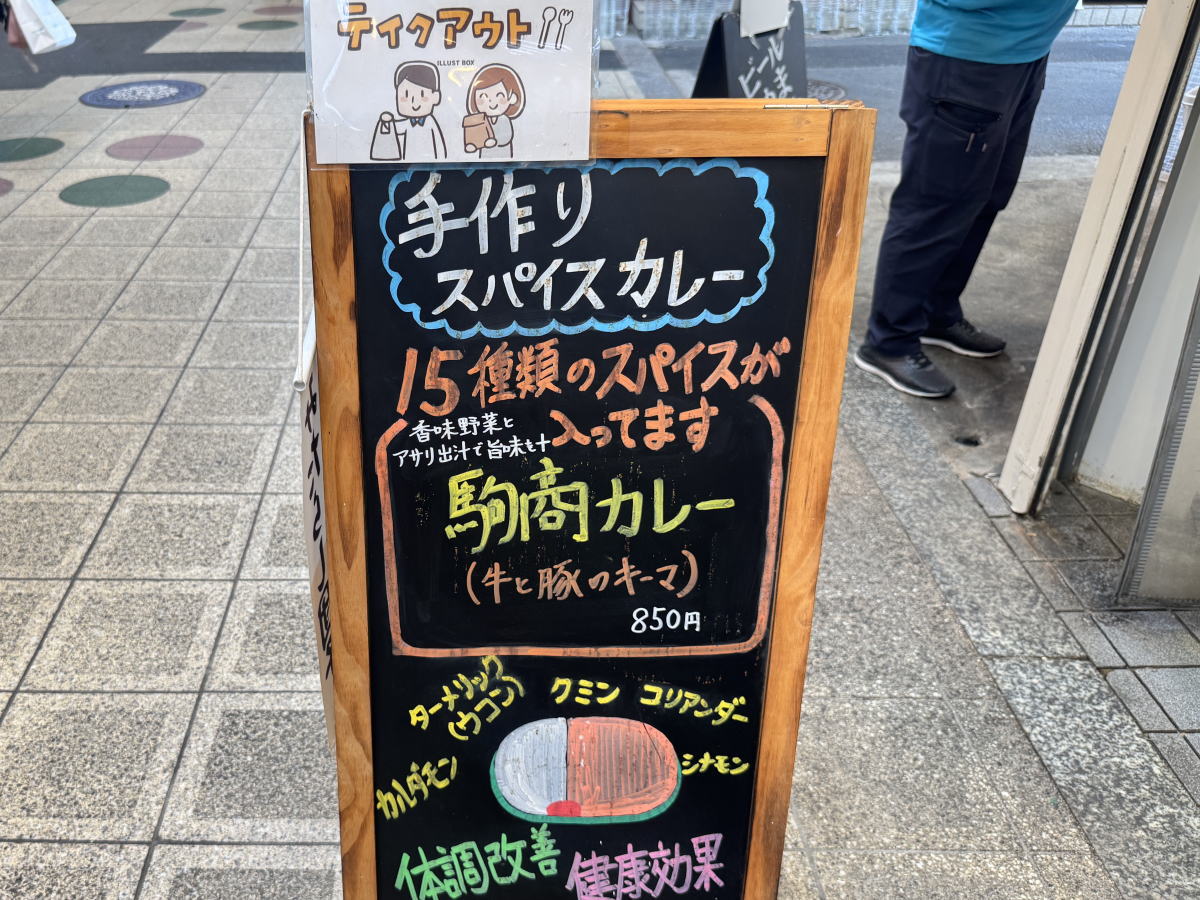 テイクアウト
ILLUST BOX
ビール
手作り
スパイスカレー
15種類のスパイスが
入ってます
香味野菜と
アサリ出汁で旨味を+
駒商カレー
(牛と豚のキーマ)
850円
ターメリック
(ウコン)
クミン
コリアンダー
カルダモン
シナモン
体調改善
健康効果